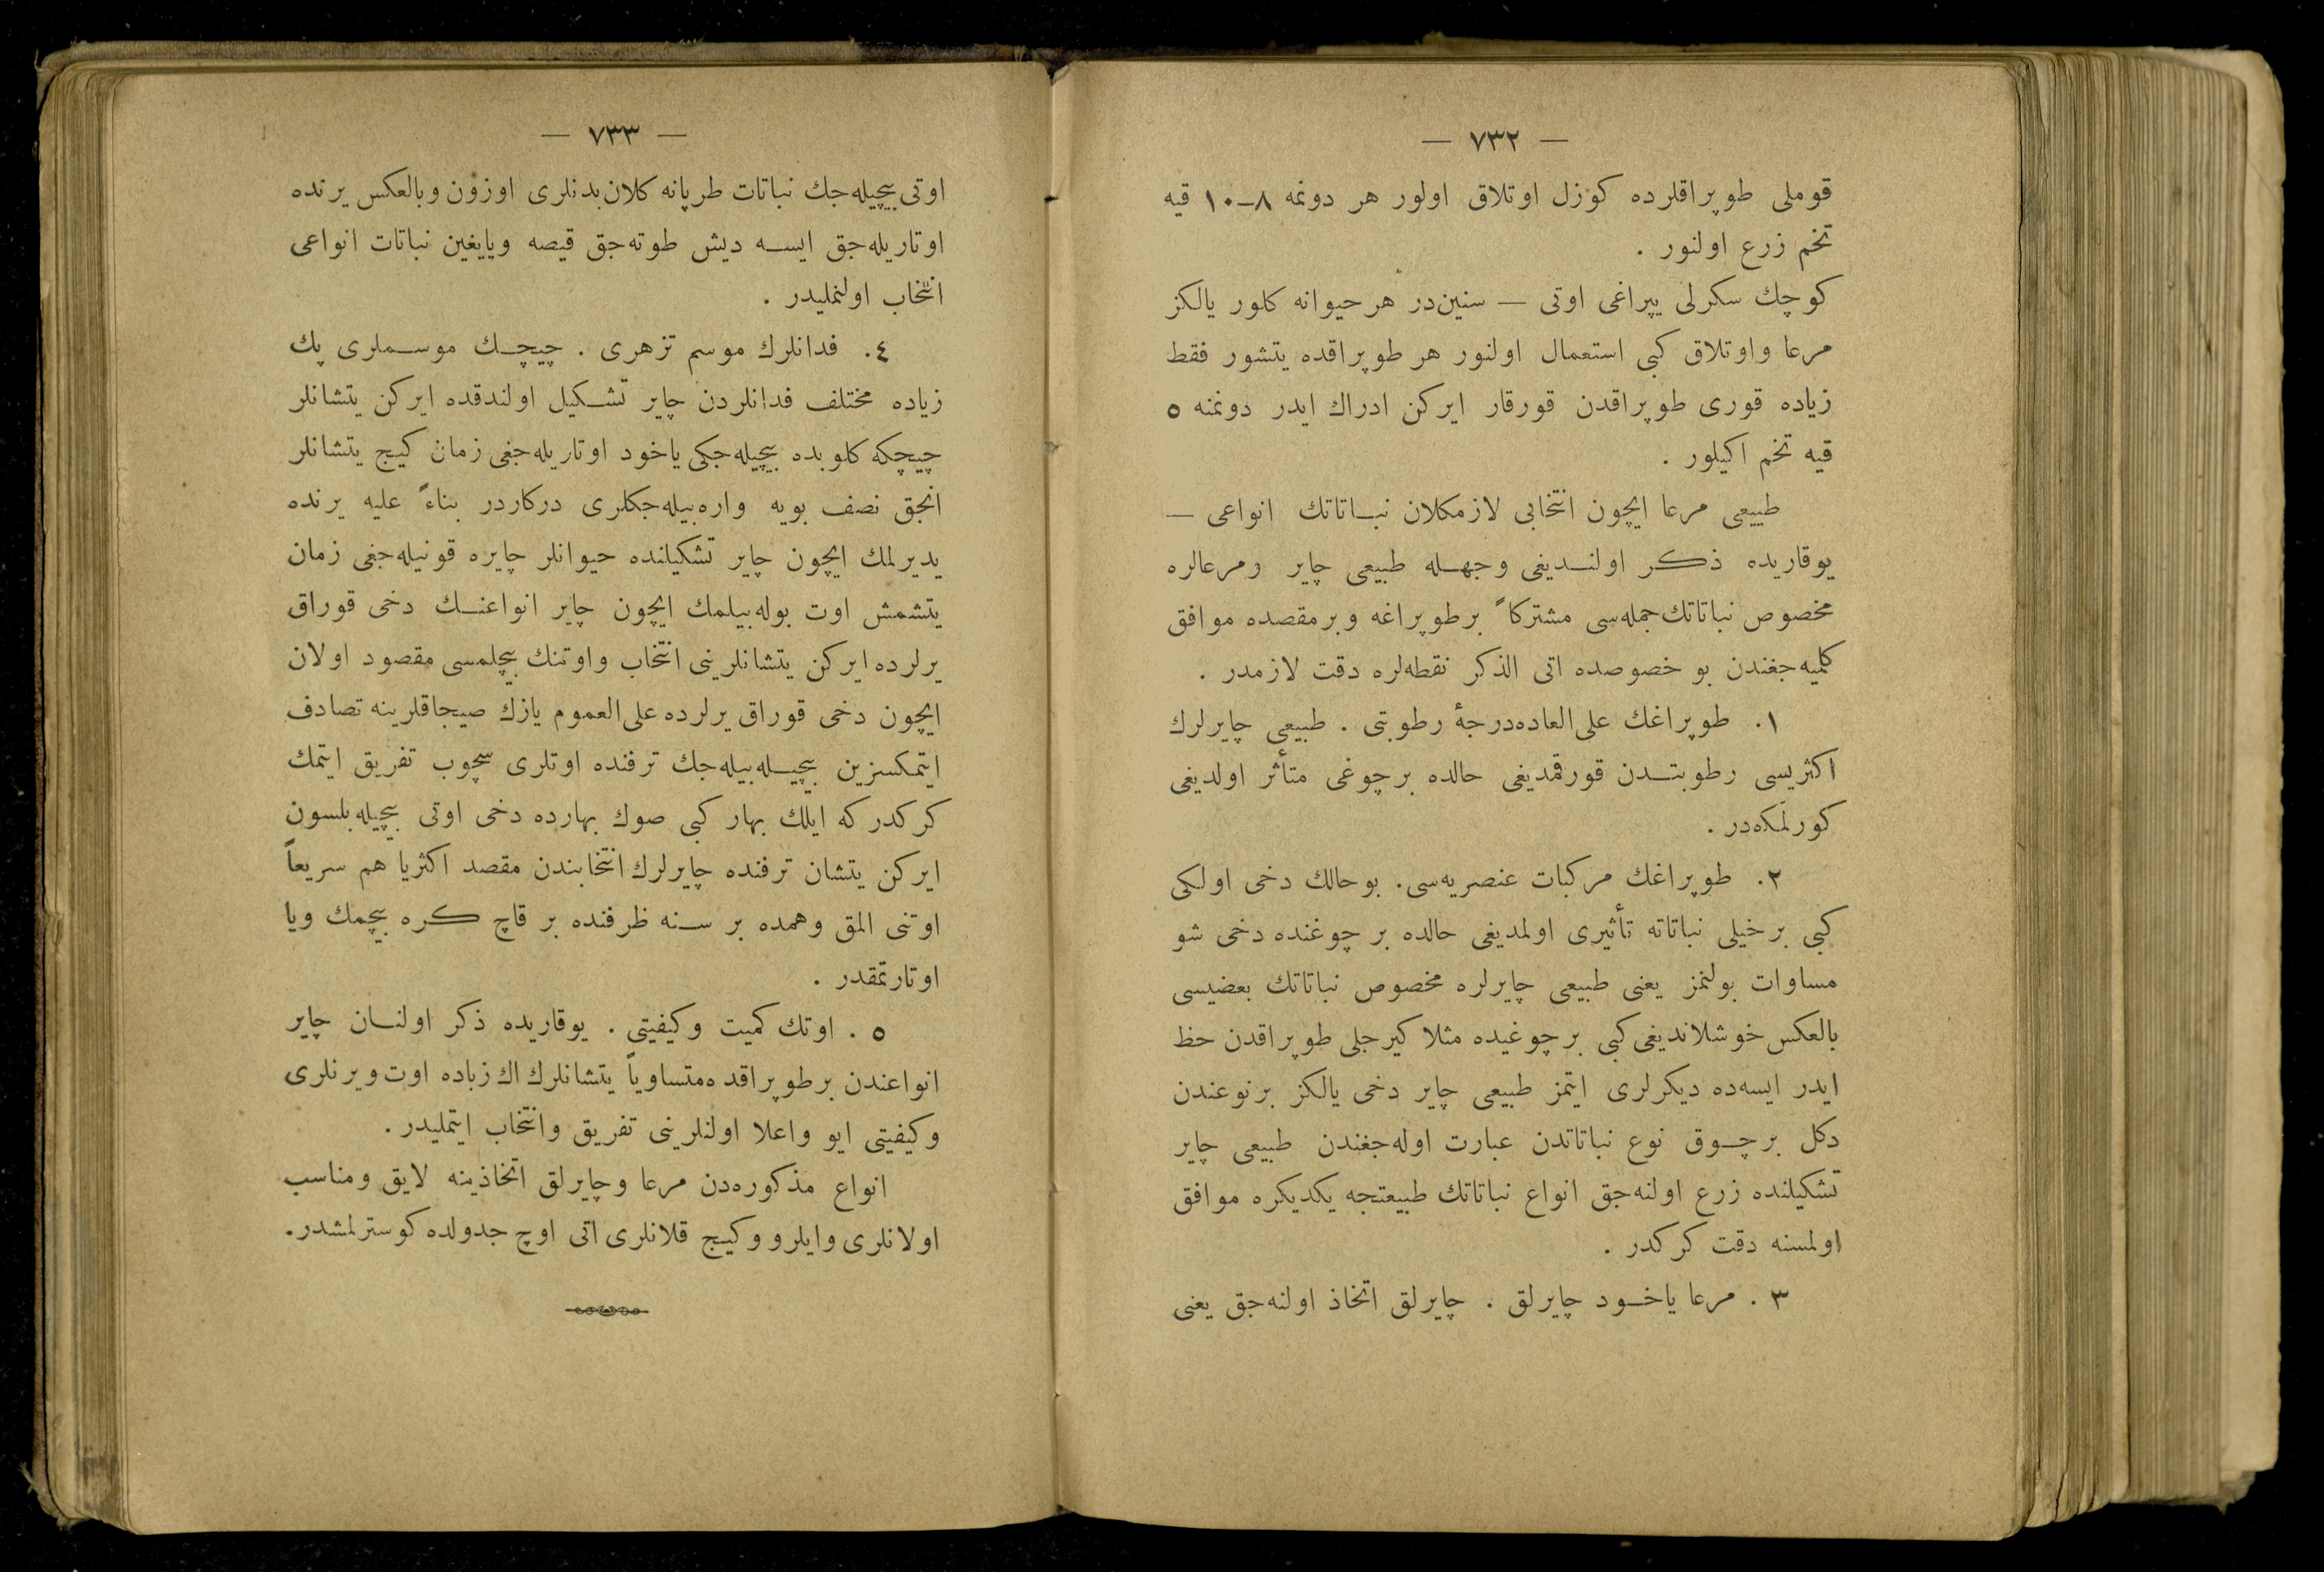 — ٧٣٢ —
قوملی طوپراقلرده كوزل اوتلاق اولور هر دونمه ٨-١٠ قیه
تخم زرع اولنور .
كوچك سكرلی یپراغی اوتی — سنین‌در هر حیوانه كلور یالكز
مرعا واوتلاق كبی استعمال اولنور هر طوپراقده یتشور فقط
زیاده قوری طوپراقدن قورقار ایركن ادراك ایدر دونمنه ٥
قیه تخم اكیلور .
طبیعی مرعا ایچون انتخابی لازمكلان نباتاتك انواعی —
یوقاریده ذكر اولندیغی وجهله طبیعی چایر ومرعالره
مخصوص نباتاتك جمله‌سی مشتركاً برطوپراغه وبرمقصده موافق
كلمیه‌جغندن بو خصوصده اتی الذكر نقطه‌لره دقت لازمدر .
١. طوپراغك علی‌العاده درجهٔ رطوبتی . طبیعی چایرلرك
اكثریسی رطوبتدن قورقمدیغی حالده برچوغی متأثر اولدیغی
كورلمكده‌در .
٢. طوپراغك مركبات عنصریه‌سی. بوحالك دخی اولكی
كبی برخیلی نباتاته تأثیری اولمدیغی حالده برچوغنده دخی شو
مساوات بولنمز یعنی طبیعی چایرلره مخصوص نباتاتك بعضیسی
بالعكس خوشلاندیغی كبی برچوغیده مثلا كیرجلی طوپراقدن حظ
ایدر ایسه‌ده دیكرلری ایتمز طبیعی چایر دخی یالكز برنوعندن
دكل برچوق نوع نباتاتدن عبارت اوله‌جغندن طبیعی چایر
تشكیلنده زرع اولنه‌جق انواع نباتاتك طبیعتجه یكدیكره موافق
اولمسنه دقت كركدر .
٣. مرعا یاخود چایرلق . چایرلق اتخاذ اولنه‌جق یعنی
— ٧٣٣ —
اوتی بیچیله‌جك نباتات طرپانه كلان بدنلری اوزون وبالعكس یرنده
اوتاریله‌جق ایسه دیش طوته‌جق قیصه ویایغین نباتات انواعی
انتخاب اولنملیدر .
٤. فدانلرك موسم تزهری . چیچك موسملری پك
زیاده مختلف فدانلردن چایر تشكیل اولندقده ایركن یتشانلر
چیچكه كلوبده بیچیله‌جكی یاخود اوتاریله‌جغی زمان كیج یتشانلر
انجق نصف بویه واره‌بیله‌جكلری دركاردر بناءً علیه یرنده
یدیرلمك ایچون چایر تشكیلنده حیوانلر چایره قونیله‌جغی زمان
یتشمش اوت بوله‌بیلمك ایچون چایر انواعنك دخی قوراق
یرلرده ایركن یتشانلرینی انتخاب واوتنك بیچلمسی مقصود اولان
ایچون دخی قوراق یرلرده علی‌العموم یازك صیجاقلرینه تصادف
ایتمكسزین بیچیله‌بیله‌جك ترفنده اوتلری سچوب تفریق ایتمك
كركدر كه ایلك بهار كبی صوك بهارده دخی اوتی بیچیله‌بلسون
ایركن یتشان ترفنده چایرلرك انتخابندن مقصد اكثریا هم سریعاً
اوتنی المق وهمده بر سنه ظرفنده بر قاچ كره بیچمك ویا
اوتارتمقدر .
٥. اوتك كمیت وكیفیتی . یوقاریده ذكر اولنان چایر
انواعندن برطوپراقده متساویاً یتشانلرك اك زیاده اوت ویرنلری
وكیفیتی ایو واعلا اولنلرینی تفریق وانتخاب ایتملیدر .
انواع مذكوره‌دن مرعا وچایرلق اتخاذینه لایق ومناسب
اولانلری وایلرو وكیج قلانلری اتی اوچ جدولده كوسترلمشدر.